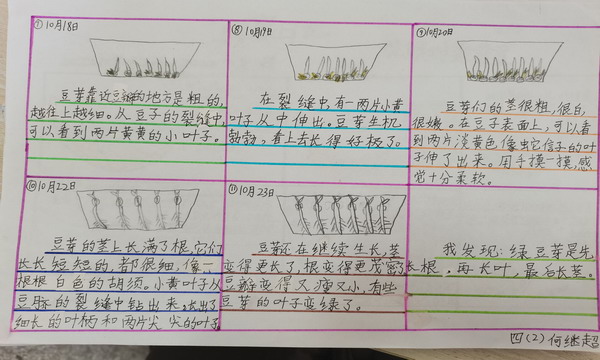 ⑦10月18日
豆芽靠近豆瓣的地方是粗的,
越往上越细。从豆子的裂缝中,
可以看到两片黄黄的小叶子。
⑧10月19日
在裂缝中,有一两片小黄
叶子从中伸出。豆芽生机
勃勃,看上去长得好极了。
⑨10月20日
豆芽们的茎很粗,很白,
很嫩。在豆子表面上,可以看
到两片淡黄色像蛇它信子的叶
子伸了出来。用手摸一摸,感
觉十分柔软。
⑩10月22日
豆芽的茎上长满了根,它们
长长短短的,都很细,像一
根根白色的胡须。小黄叶子从
豆豚的裂缝中钻出来,长出了
细长的叶柄和两片尖尖的叶子
⑪10月23日
豆芽还在继续生长,茎
变得更长了,根变得更茂密了
豆瓣变得又瘦又小,有些
豆芽的叶子变绿了。
我发现:绿豆芽是先
长根,再长叶,最后长茎。
四(2)何继超